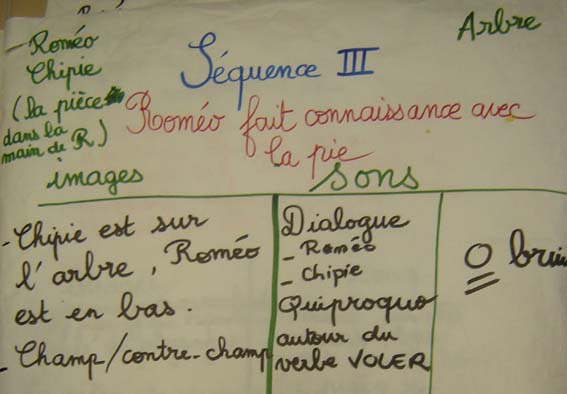 - Roméo
Chipie
(la pièce
dans la
main de R)
Arbre
Séquence III
Roméo fait connaissance avec
la pie
images
sons
- Chipie est sur
l'arbre, Roméo
est en bas.
- Champ/contre-champ
Dialogue
- Roméo
- Chipie
Quiproquo
autour du
verbe VOLER
O brui